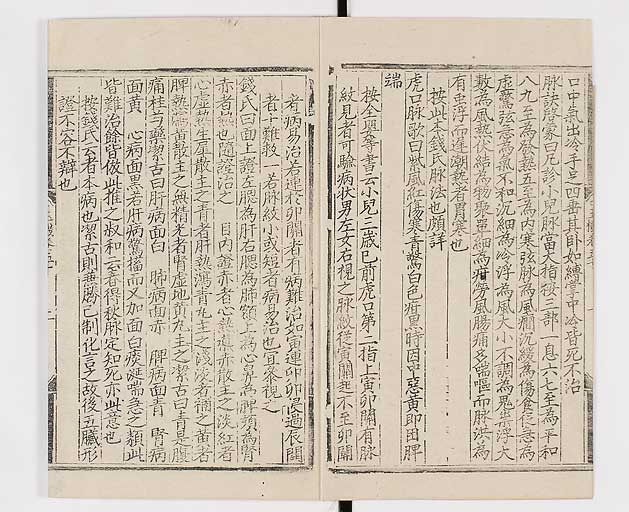 口中氣出冷手足四垂其卧如縛掌中冷皆死不治
脉訣啓蒙曰凡診小兒脉當大指按三部一息六七至為平和
八九至為發熱五至為内寒弦脉為風癇沉緩為傷食促急為
虚驚弦急為氣不和沉細為冷浮為風大小不調為鬼祟浮大
數為風熱伏結為物聚單細為疳勞風腸痛多喘嘔而脉洪為
有虫浮而遲潮熱者胃寒也
按此本錢氏脉法也頗詳
虎口脉歌曰紫風紅傷寒青驚白色疳黒時因中惡黄即困脾
端
按全嬰等書云小兒三歲已前虎口第二指上寅卯關有脉
紋見者可驗病状男左女右視之脉紋從寅關起不至卯關
者病易治若連於卯關者有病難治如寅連卯卯侵過辰關
者十難救一若脉紋小或短者病易治也宜叅視之
錢氏曰面上證左腮為肝右腮為肺額上為心鼻為脾頦為腎
赤者熱也隨證治之 目内證赤者心熱導赤散主之淡紅者
心虚熱生犀散主之青者肝熱瀉青丸主之淺淡者補之黄者
脾熱瀉黄散主之無精光者腎虚地黄丸主之潔古曰青是腹
痛桂枝芍藥潔古曰肝病面白 肺病面赤 脾病面青 腎病
面黄 心病面黒若肝病驚搐而又加面白痰涎喘急之類此
皆難治餘皆倣此推之叔和云春得秋脉定知死亦此意也
按錢氏云者本病也潔古則兼勝己制化言之故後五臓形
證不容不辯也